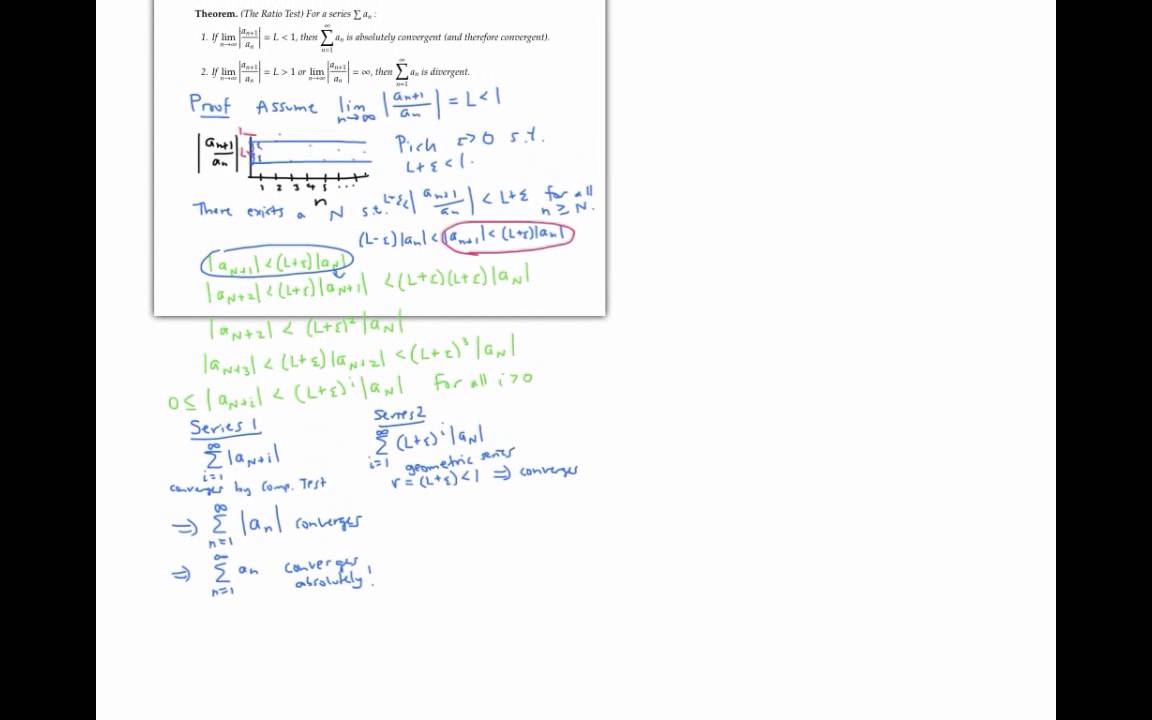 Theorem. (The Ratio Test) For a series ∑ aₙ :
1. If lim n→∞ |aₙ₊₁/aₙ| = L < 1, then ∑ n=1 ∞ aₙ is absolutely convergent (and therefore convergent).
2. If lim n→∞ |aₙ₊₁/aₙ| = L > 1 or lim n→∞ |aₙ₊₁/aₙ| = ∞, then ∑ n=1 ∞ aₙ is divergent.
Proof Assume lim n→∞ |aₙ₊₁/aₙ| = L < 1
|aₙ₊₁/aₙ| 1 L Pich ε>0 s.t.
L+ε < 1.
1 2 3 4 5 ...
n
There exists a N s.t. L-ε < |aₙ₊₁/aₙ| < L+ε for all n ≥ N.
(L-ε)|aₙ| < |aₙ₊₁| < (L+ε)|aₙ|
|a_{N+1}| < (L+ε)|a_N|
|a_{N+2}| < (L+ε)|a_{N+1}| < (L+ε)(L+ε)|a_N|
|a_{N+2}| < (L+ε)²|a_N|
|a_{N+3}| < (L+ε)|a_{N+2}| < (L+ε)³|a_N|
0 ≤ |a_{N+i}| < (L+ε)ⁱ|a_N| for all i>0
Series 1
∑ i=1 ∞ |a_{N+i}|
converges by Comp. Test
Series 2
∑ i=1 ∞ (L+ε)ⁱ|a_N|
geometric series
r = (L+ε) < 1 ⇒ converges
⇒ ∑ n=1 ∞ |aₙ| converges
⇒ ∑ n=1 ∞ aₙ converges
absolutely!